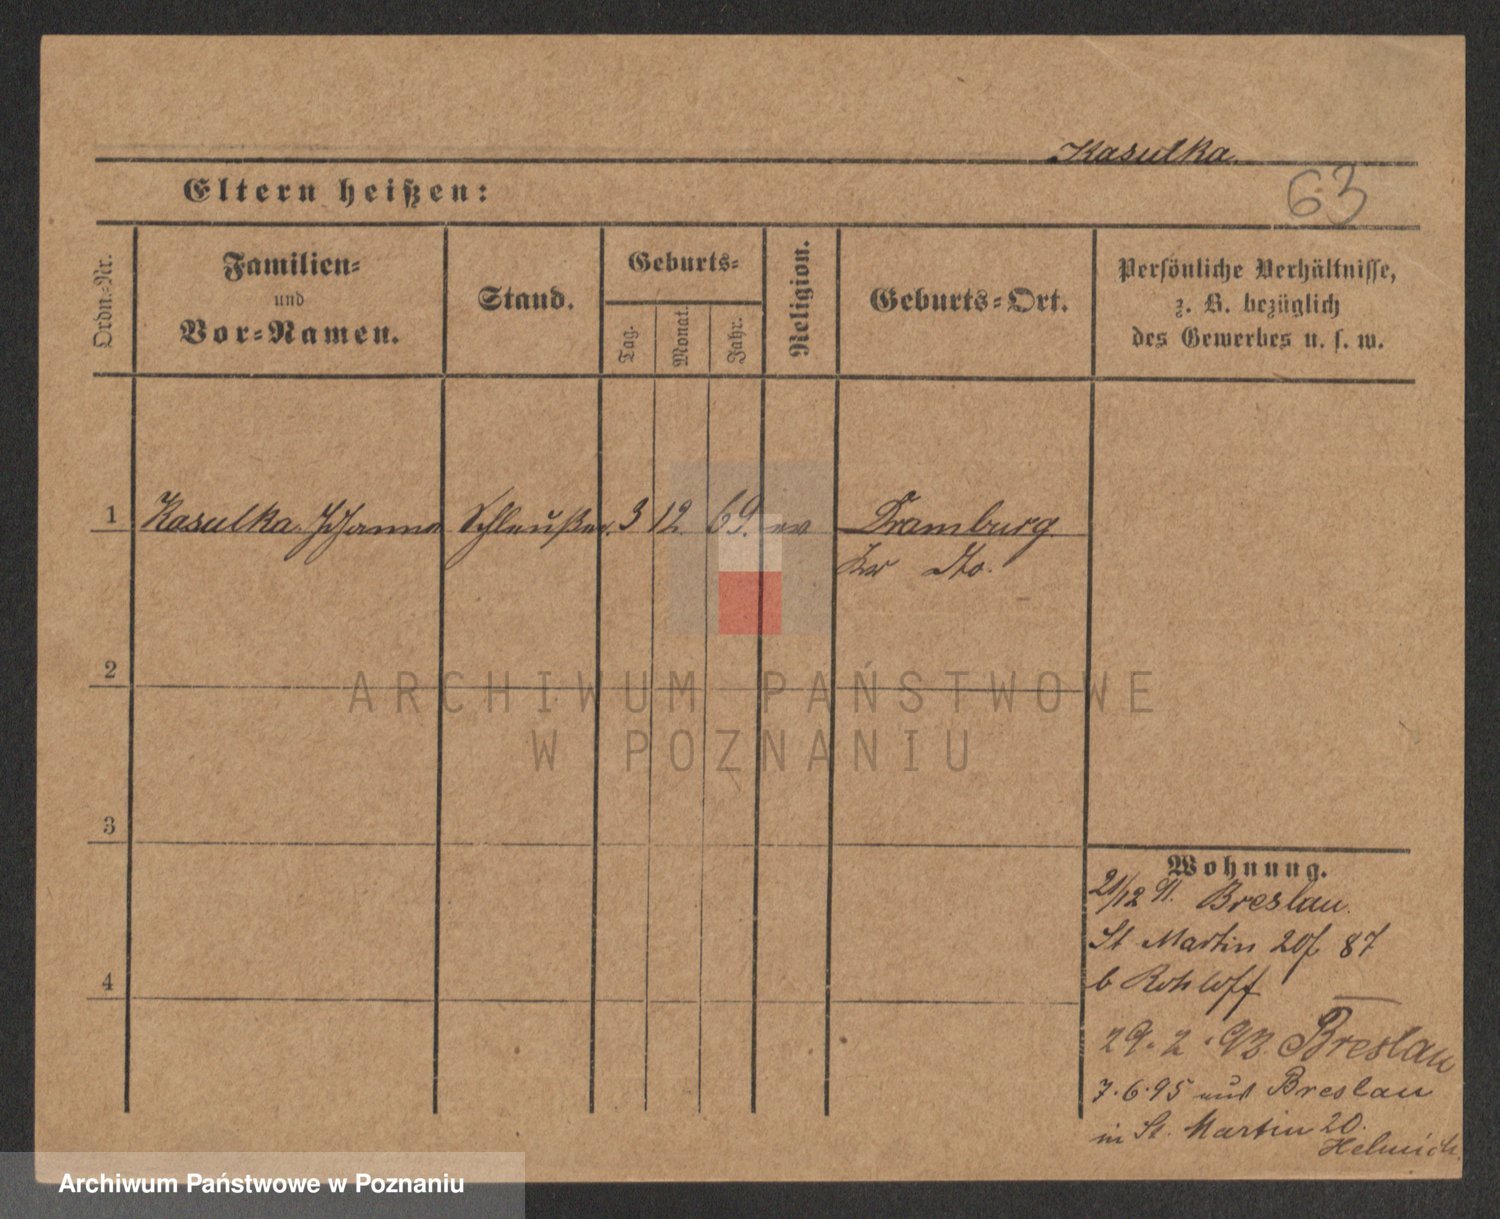 Kasulka.
63
Eltern heißen:
Ordn.-Nr.
Familien-
und
Vor-Namen.
Stand.
Geburts-
Tag.
Monat.
Jahr.
Religion.
Geburts-Ort.
Persönliche Verhältnisse,
z. B. bezüglich
des Gewerbes u. s. w.
1 Kasulka 3 12. 69. ev Dramburg
2
3
4
Wohnung.
21/12 91. Breslau.
St Martin 20f 87
b Rohloff
29. 2. 93. Breslau
7.6.95 aus Breslau
in St. Martin 20.
ARCHIWUM PAŃSTWOWE
W POZNANIU
Archiwum Państwowe w Poznaniu